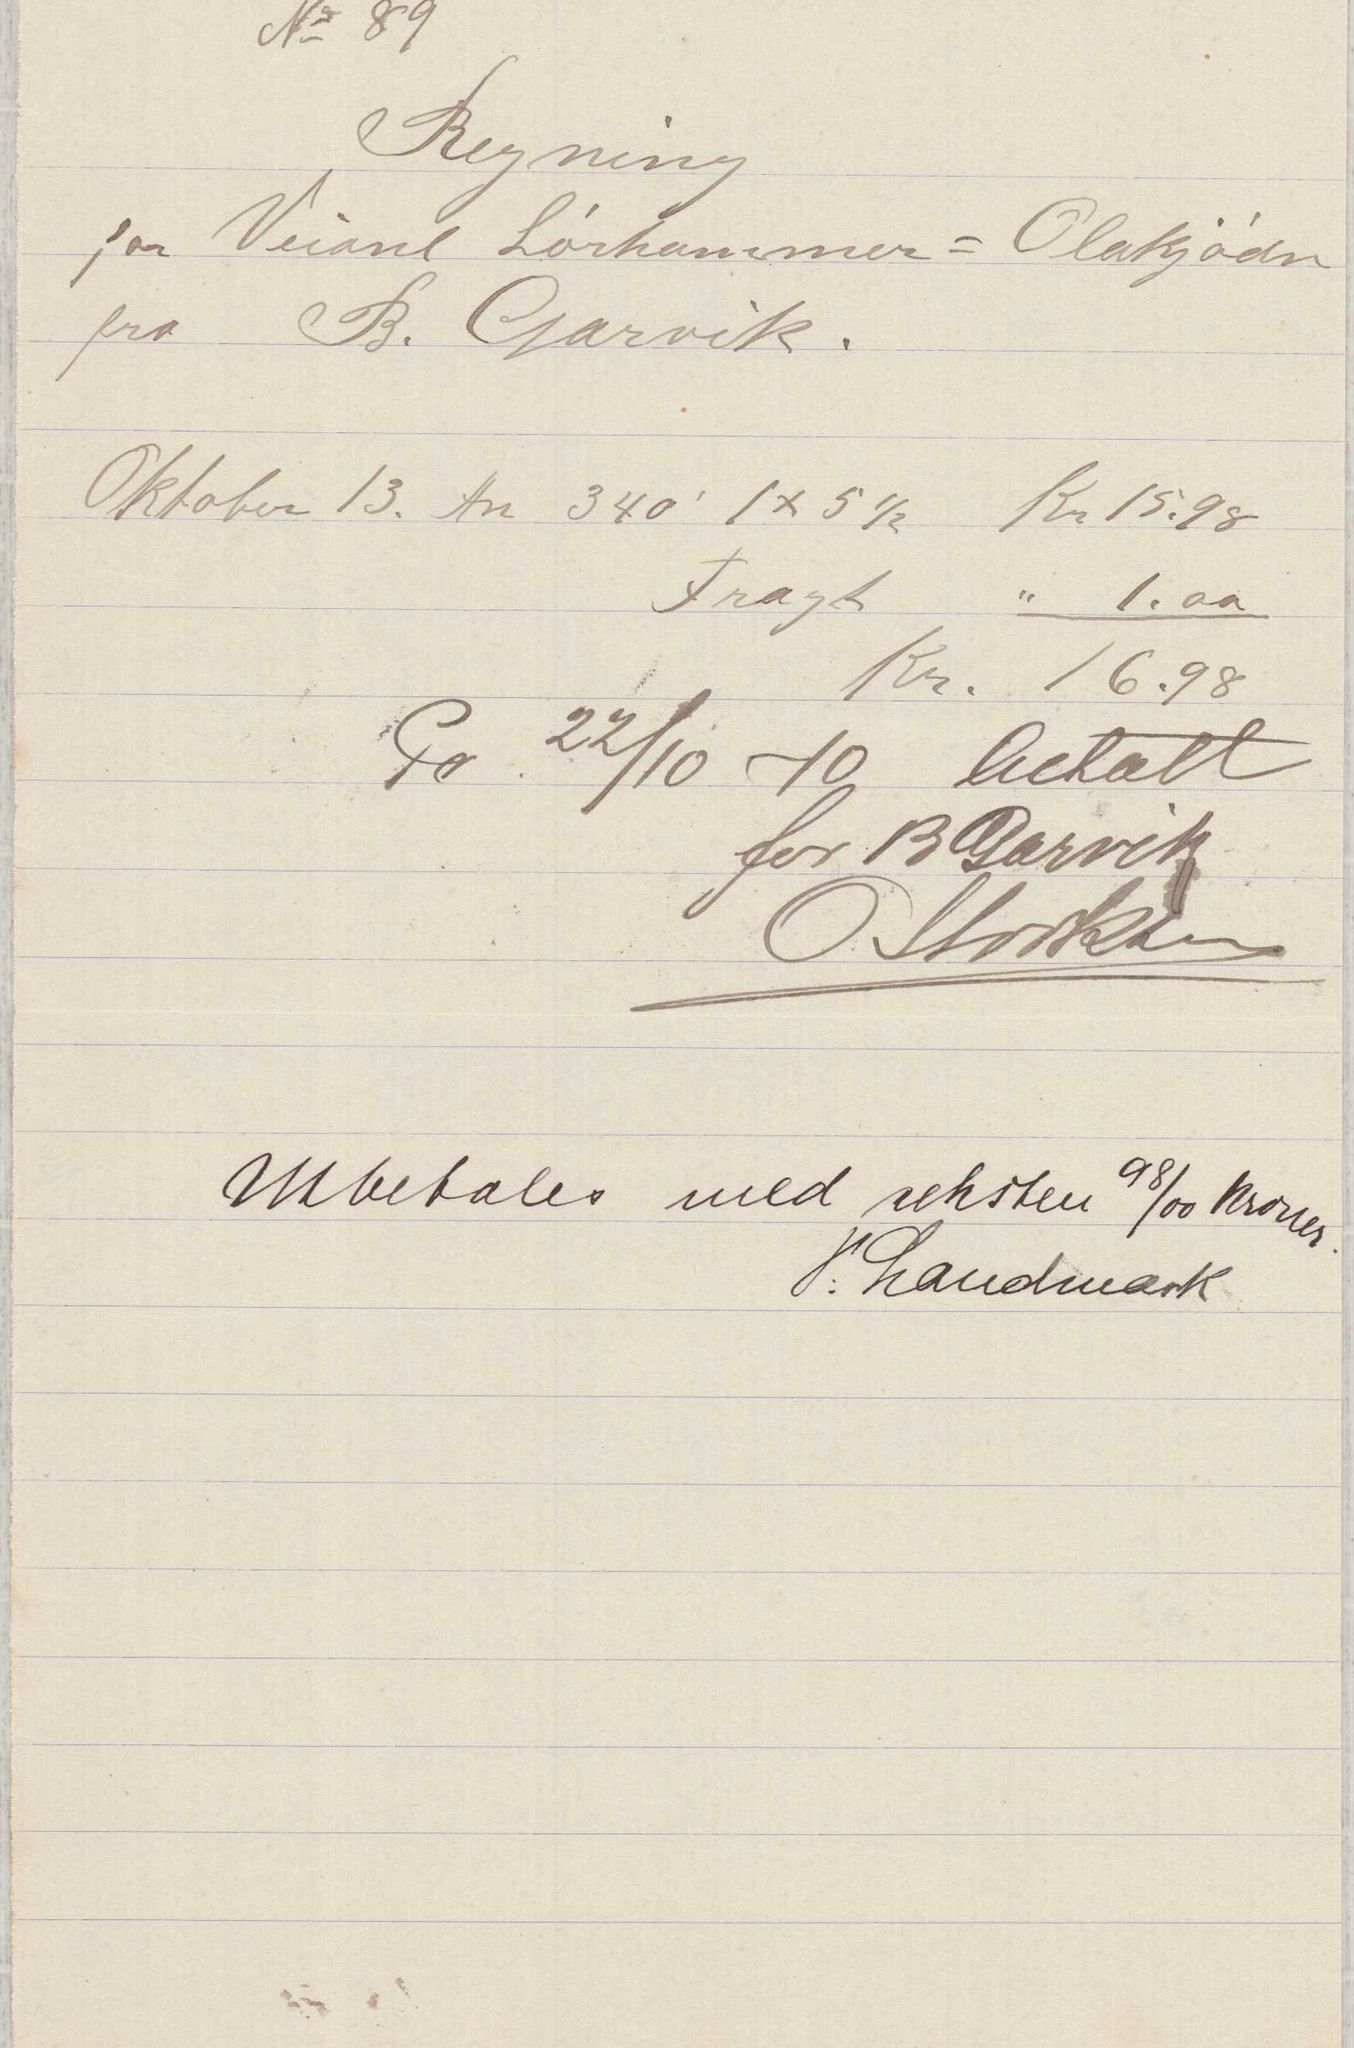 No 89
Regning
for Veianl Lórhammer = Olakjódn
fra B. Garvik.
Oktober 13. An 340' 1 x 5 1/2 Kr 15.98
Fragt " 1.00
Kr. 16.98
22/10 -10 betalt
for B Garvik
O.
Utbetales med seksten 98/00 Kroner.
Landmark